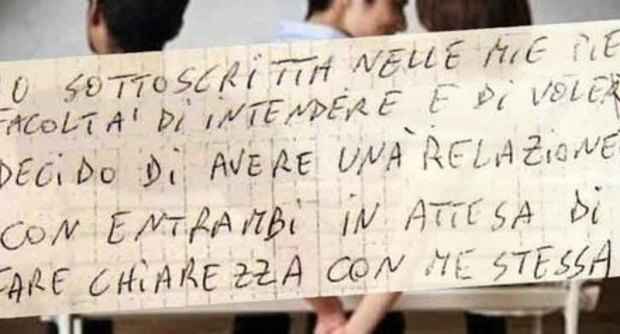 O SOTTOSCRITTA NELLE MIE PIE
FACOLTA' DI INTENDERE E DI VOLER
DECIDO DI AVERE UNA RELAZIONE
CON ENTRAMBI IN ATTESA DI
FARE CHIAREZZA CON ME STESSA